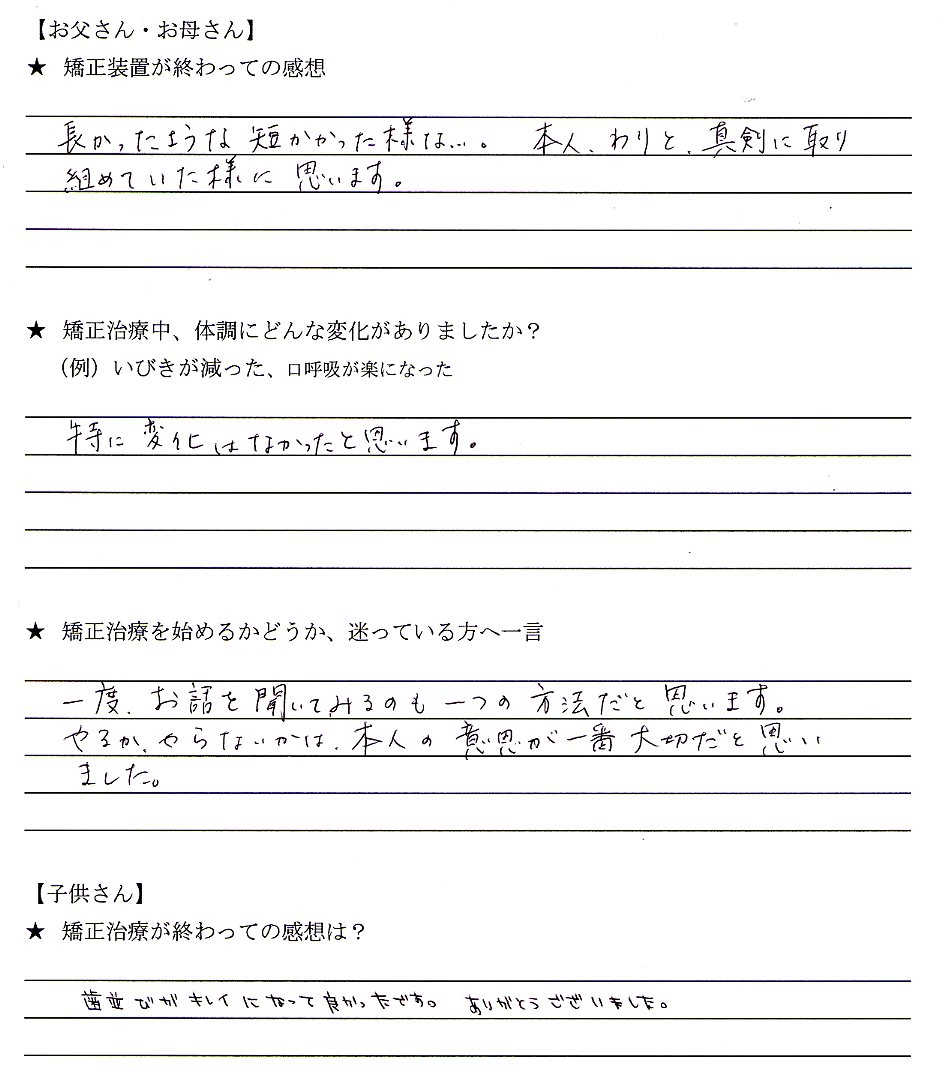 【お父さん・お母さん】
★ 矯正装置が終わっての感想
長かったような短かかった様な…。 本人、わりと、真剣に取り
組めていた様に思います。
★ 矯正治療中、体調にどんな変化がありましたか？
（例）いびきが減った、口呼吸が楽になった
特に変化はなかったと思います。
★ 矯正治療を始めるかどうか、迷っている方へ一言
一度、お話を聞いてみるのも一つの方法だと思います。
やるか、やらないかは、本人の意思が一番大切だと思い
ました。
【子供さん】
★ 矯正治療が終わっての感想は？
歯並びがキレイになって良かったです。 ありがとうございました。